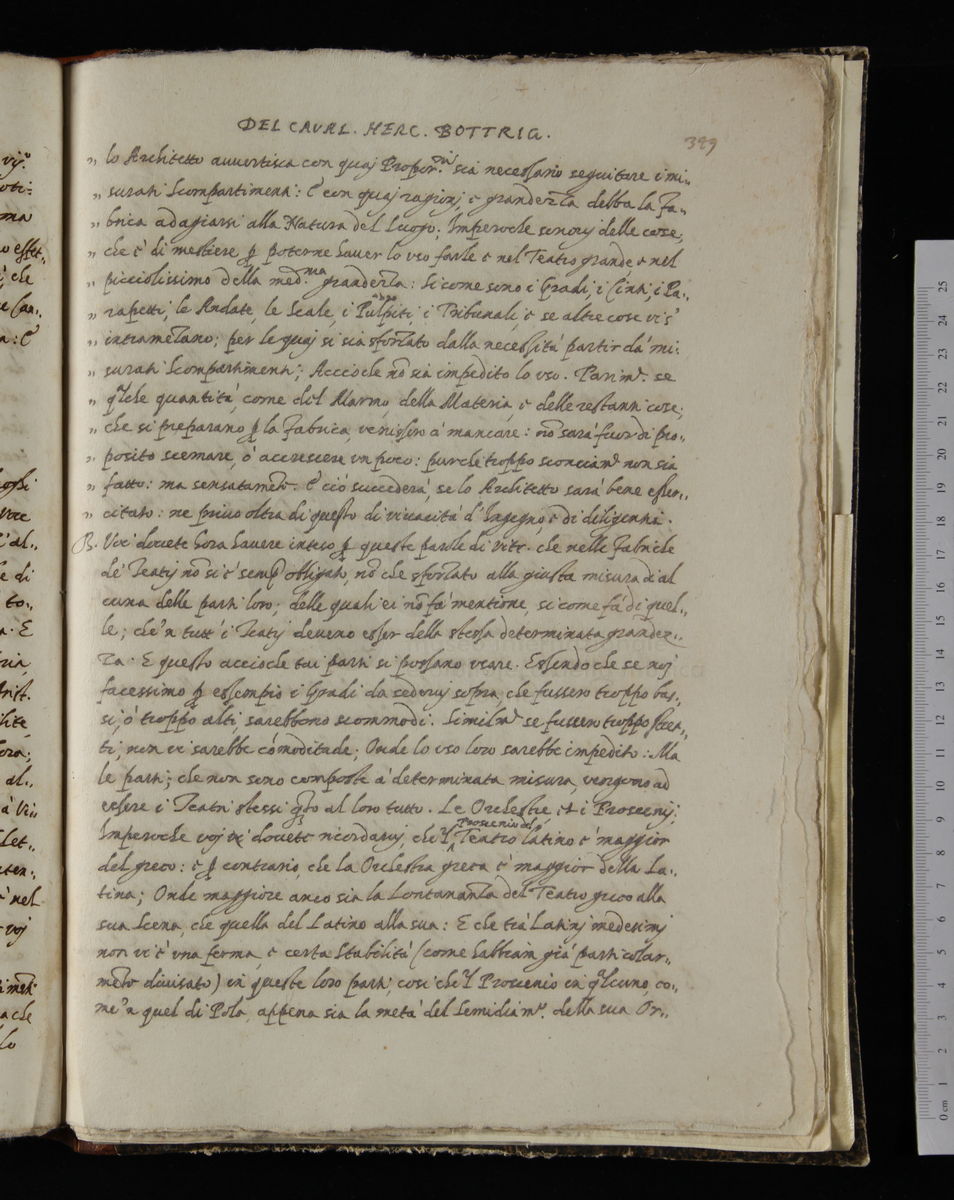 DEL CAVAL. HERC. BOTTRIG.
399
„ lo Architetto auuertisca con quaj Propor.ni sia necessario seguitare i mi„
„ surati scompartimenti: E con quaj ragionj, e grandezza debba la fa„
„ brica adagiarsi alla Natura del Luogo; Imperoche sonovj delle cose;
„ che è di mestiere ꝑ poterne hauer lo uso farle e nel Teatro grande e nel
„ picciolissimo della med.ma grandezza: Si come sono i Gradi, i Cinti, i Pa„
„ rapetti, le Andate, le Scale, i Pulpiti, i Tribunali, e se altre cose vi s'
„ intrametano; per le quaj si sia sforzato dalla necessità partir da' mi„
„ surati scompartimenti; Accioche nõ sia impedito lo uso. Parim.te se
„ qlche quantità, come del Marmo, della Materia, e delle restanti cose;
„ che si preparano ꝑ la fabrica, venissero à mancare: nõ sarà fuor di pro„
„ posito scemare, ò accrescere un poco: purche troppo sconciam.te non sia
„ fatto: ma sensatamẽte. E ciò succederà, se lo Architetto sarà bene esser„
„ citato: ne priuo oltra di questo di viuacità d'Ingegno, e di diligentia.
B. Voi douete hora hauere inteso ꝑ queste parole di Vitr. che nelle fabriche
de' Teatrj nõ si è semꝑ obligato, nõ che sforzato alla giusta misura di al
cuna delle parti loro; delle quali ei nõ fa' mentione, si come fà di quel„
le; che'n tutt' i Teatrj deueno esser della stessa determinata grandez„
za. E questo accioche tai parti si possano usare. Essendo che se noj
facessimo ꝑ essempio i Gradi da sederuj sopra, che fussero troppo bas„
si, ò troppo alti, sarebbono scommodi. Similm.te se fussero troppo stret„
ti, non vi sarebbe cõmoditade; Onde lo uso loro sarebbe impedito: Ma
le parti; che non sono composte à determinata misura, vengono ad
essere i Teatri stessi qto al loro tutto. Le Orchestre, et i Proscenij;
Proscenio del
Imperoche voj douete ricordaruj, che'l Teatro latino è maggior
del greco: e ꝑ contrario, che la Orchestra greca è maggior della La„
tina; Onde maggiore anco sia la Lontananza del Teatro greco alla
sua Scena, che quella del Latino alla sua: E che trà Latinj medesimj
non vi è una ferma, e certa stabilità (come habbiam già particolar„
mẽte diuisato) in queste loro parti, così che'l Proscenio in qlcuno, co„
me'n quel di Pola, appena sia la metà del Semidiam.o della sua Or„